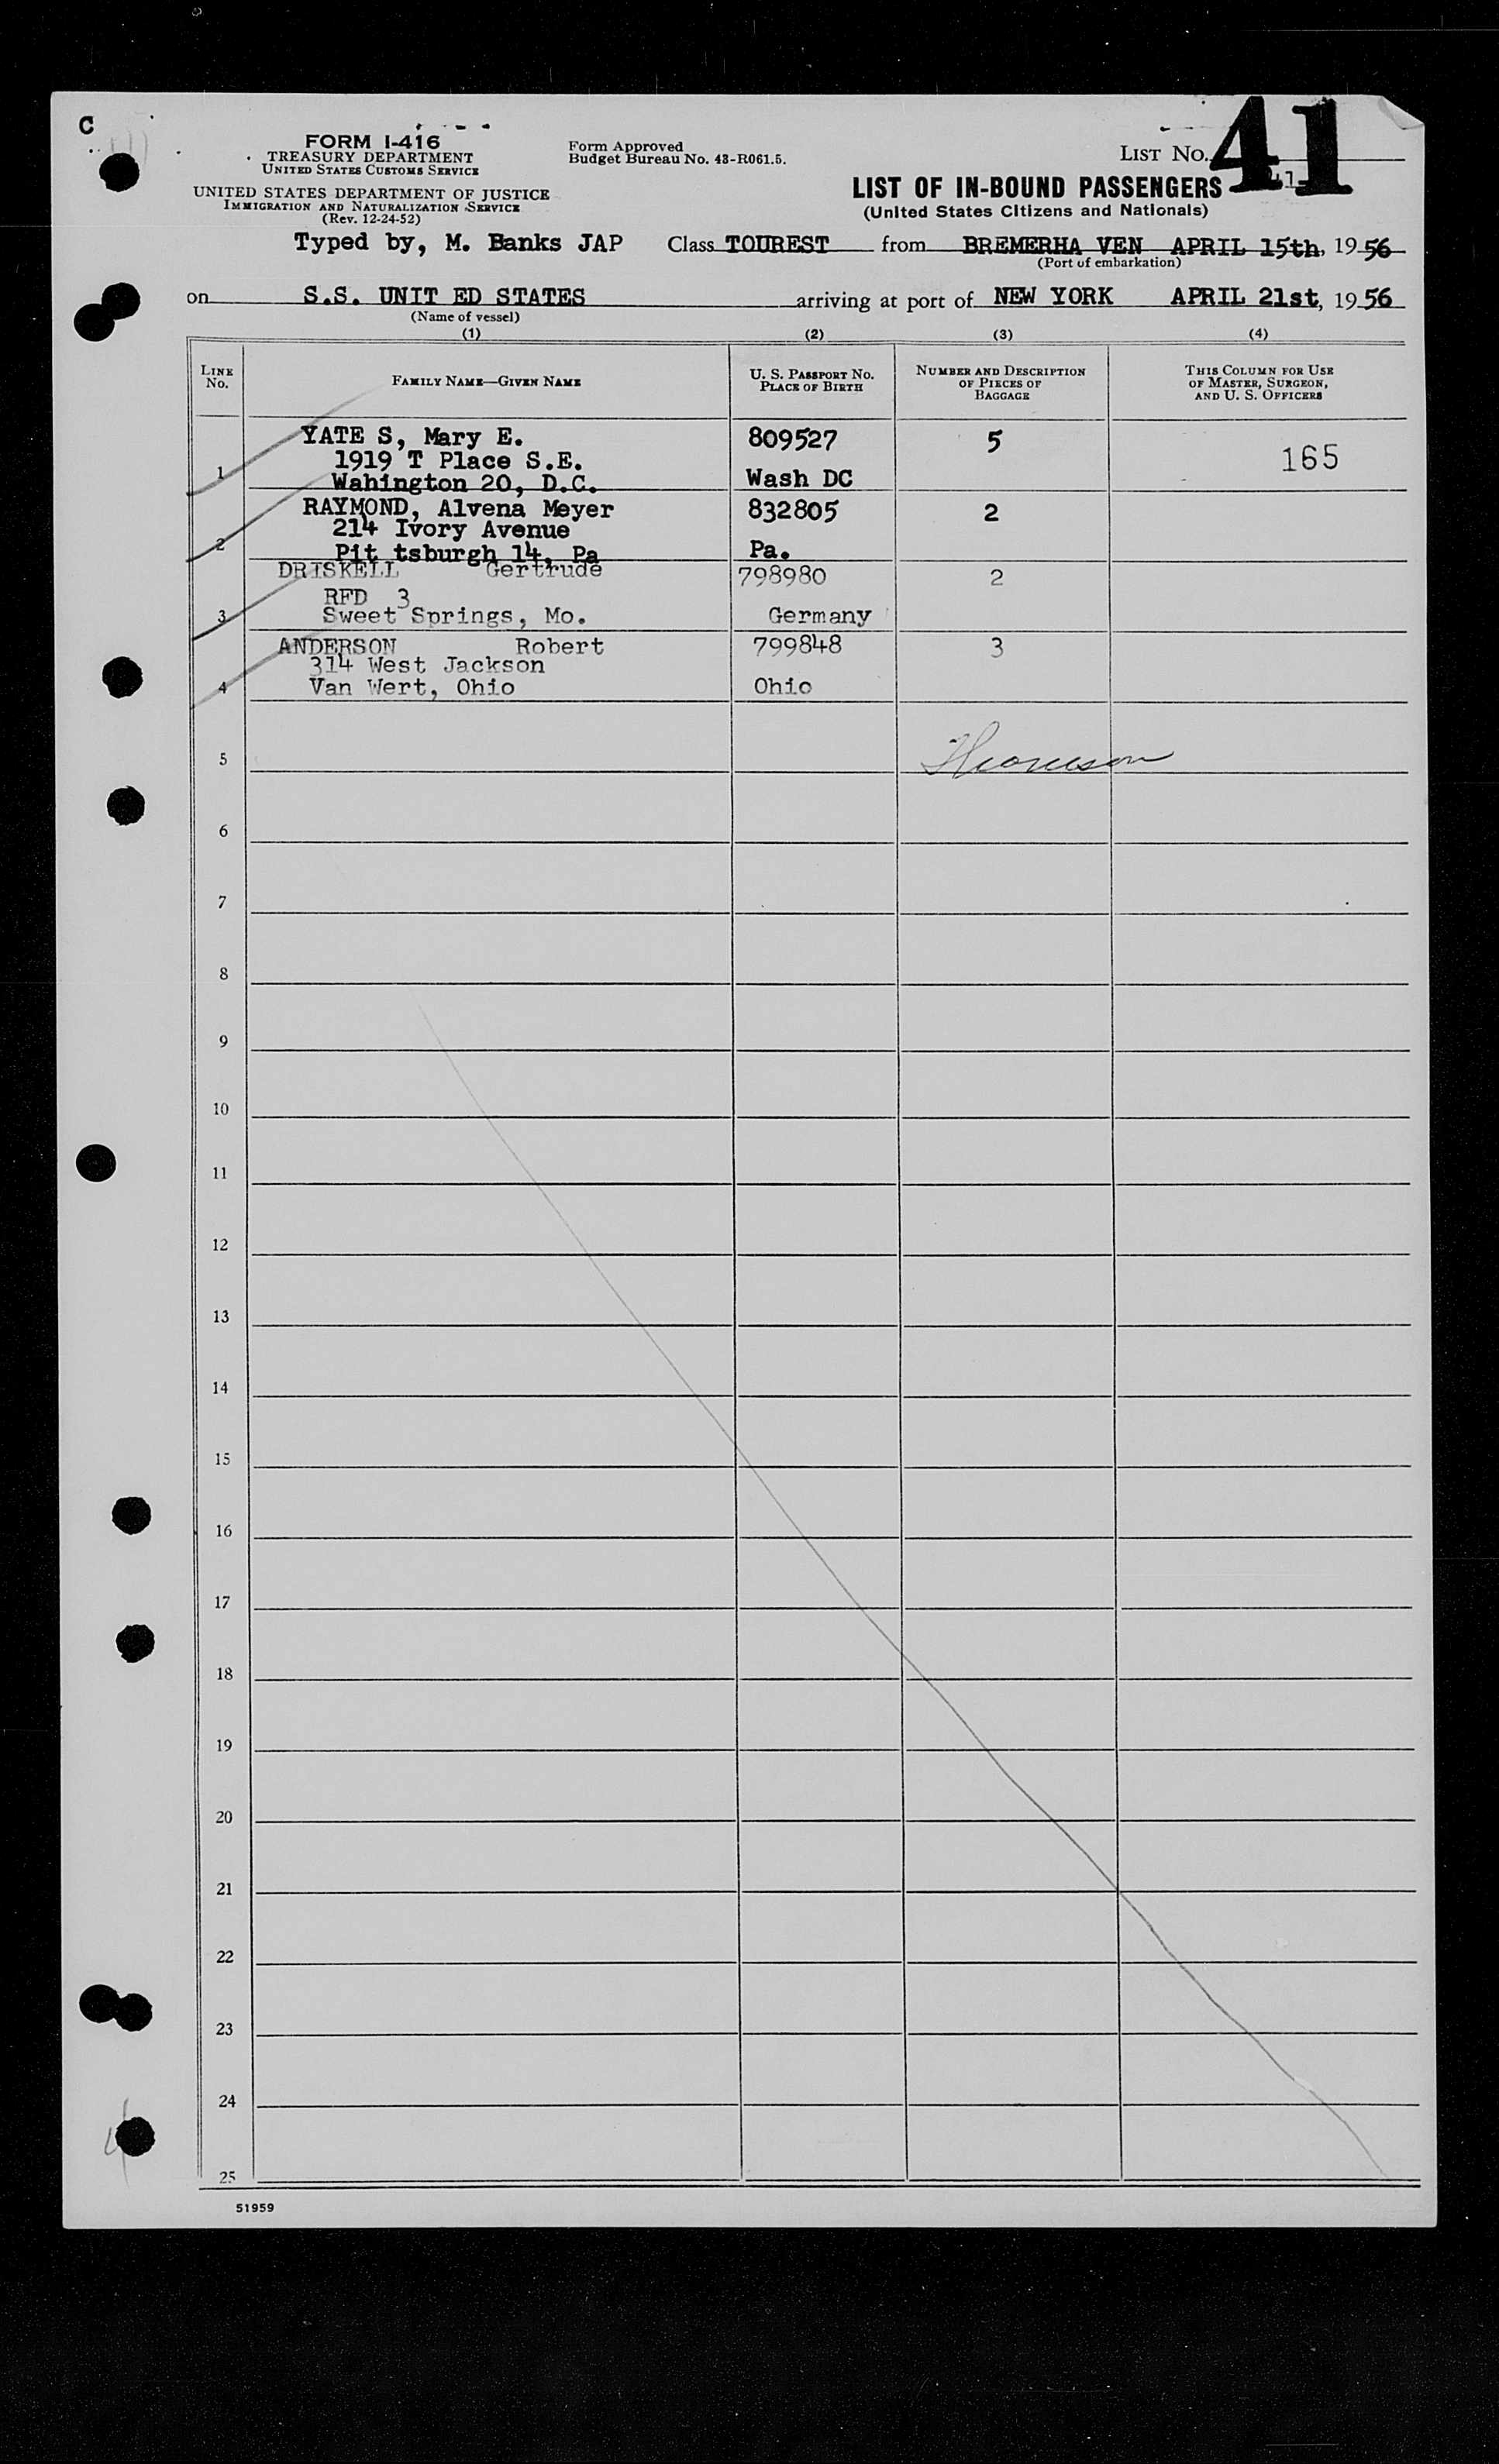 C
FORM I-416
TREASURY DEPARTMENT
UNITED STATES CUSTOMS SERVICE
UNITED STATES DEPARTMENT OF JUSTICE
IMMIGRATION AND NATURALIZATION SERVICE
(Rev. 12-24-52)
Form Approved
Budget Bureau No. 43-R061.5.
LIST No. 41
LIST OF IN-BOUND PASSENGERS
(United States Citizens and Nationals)
Typed by, M. Banks JAP Class TOUREST from BREMERHA VEN APRIL 15th, 1956
(Port of embarkation)
on S.S. UNIT ED STATES arriving at port of NEW YORK APRIL 21st, 1956
(Name of vessel)
(1) (2) (3) (4)
LINE No. FAMILY NAME—GIVEN NAME U. S. PASSPORT No. PLACE OF BIRTH NUMBER AND DESCRIPTION OF PIECES OF BAGGAGE THIS COLUMN FOR USE OF MASTER, SURGEON, AND U. S. OFFICERS
YATE S, Mary E. 809527 5
1919 T Place S.E. 165
1 Wahington 20, D.C. Wash DC
RAYMOND, Alvena Meyer 832805 2
214 Ivory Avenue
2 Pit tsburgh 14, Pa Pa.
DRISKELL Gertrude 798980 2
RFD 3
3 Sweet Springs, Mo. Germany
ANDERSON Robert 799848 3
314 West Jackson
4 Van Wert, Ohio Ohio
5
6
7
8
9
10
11
12
13
14
15
16
17
18
19
20
21
22
23
24
4
25
51959